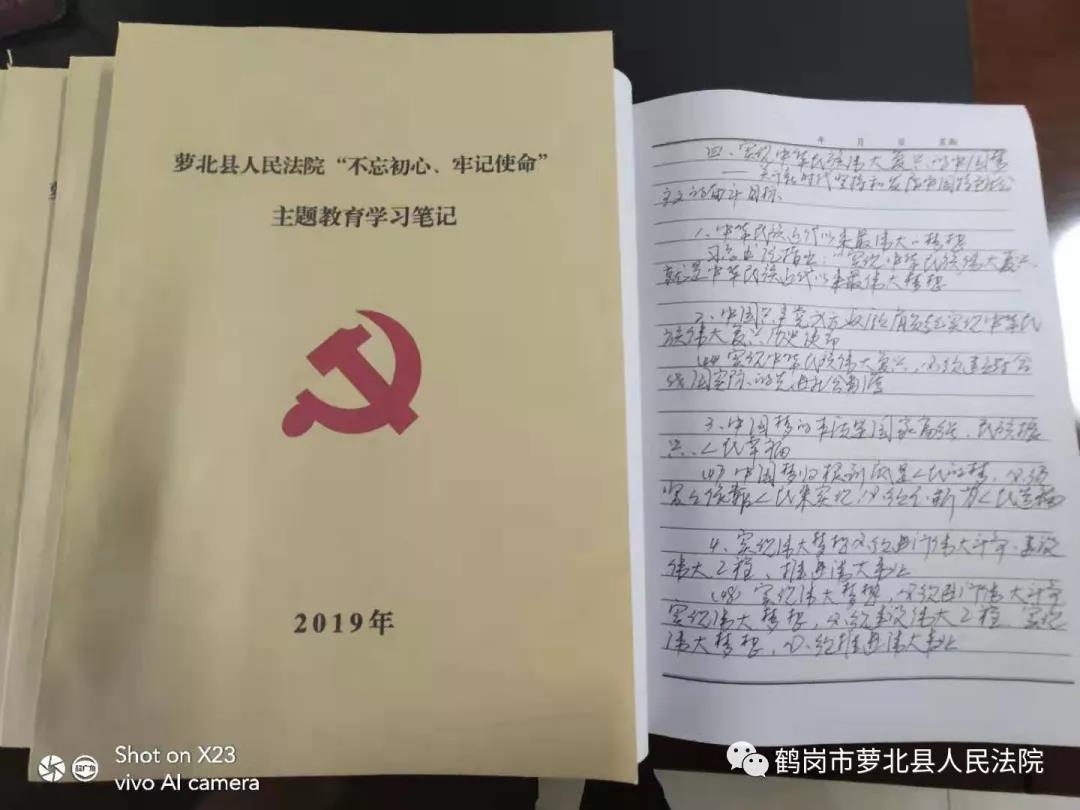 萝北县人民法院“不忘初心、牢记使命”
主题教育学习笔记
2019年
年 月 日 星期
四、实现中华民族伟大复兴的中国梦
——关于新时代坚持和发展中国特色社会
主义的奋斗目标
1、中华民族近代以来最伟大的梦想
习总书记指出:实现中华民族伟大复兴,
就是中华民族近代以来最伟大梦想
2、中国共产党
族伟大复兴历史使命
实现中华民族伟大复兴,必须建立符合
我国实际的先进社会制度
3、中国梦的本质是国家富强、民族振
兴、人民幸福
中国梦归根到底是人民的梦,必须
紧紧依靠人民来实现,必须不断为人民造福
4、实现伟大梦想必须进行伟大斗争、建设
伟大工程、推进伟大事业
(48) 实现伟大梦想,必须进行伟大斗争
实现伟大梦想,必须建设伟大工程 实现
伟大梦想,必须推进伟大事业
Shot on X23
vivo AI camera
鹤岗市萝北县人民法院